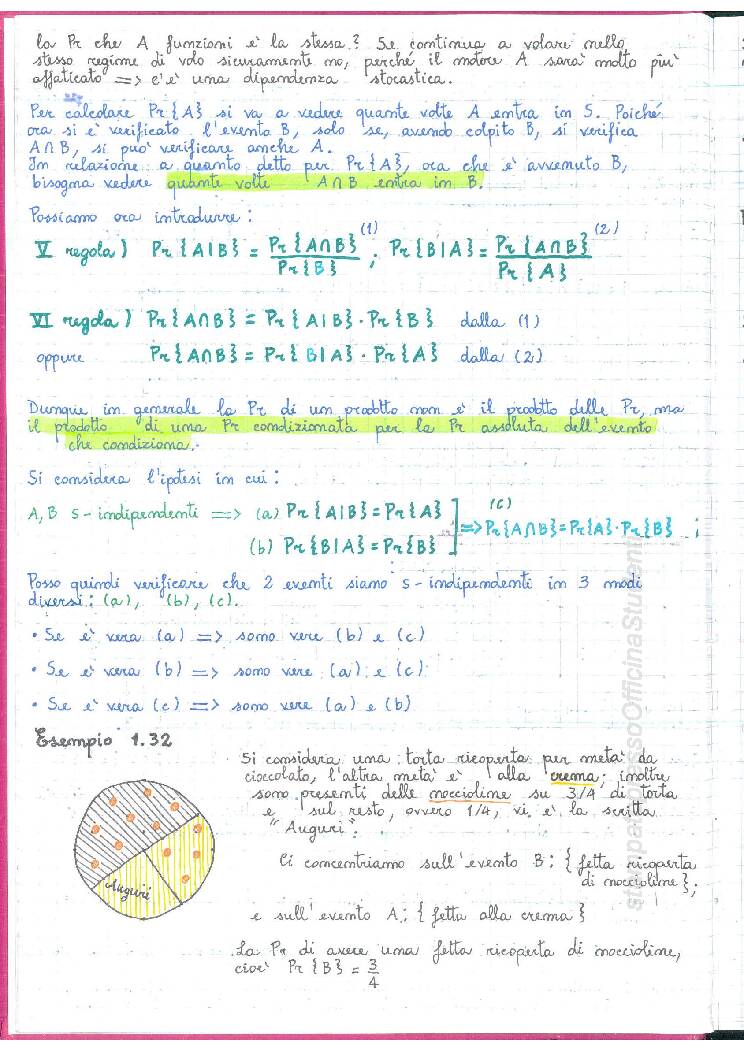 la Pr che A funzioni e' la stessa? Se continua a volare nello
stesso regime di volo sicuramente no, perché il motore A sara' molto piu'
affaticato => c'e' una dipendenza stocastica.
Per calcolare Pr{A} si va a vedere quante volte A entra in S. Poiché
ora si e' verificato l'evento B, solo se, avendo colpito B, si verifica
A∩B, si puo' verificare anche A.
In relazione a quanto detto per Pr{A}, ora che e' avvenuto B,
bisogna vedere quante volte A∩B entra in B.
Possiamo ora introdurre:
V regola) Pr{A|B} = Pr{A∩B}/Pr{B} (1); Pr{B|A} = Pr{A∩B}/Pr{A} (2)
VI regola) Pr{A∩B} = Pr{A|B}·Pr{B} dalla (1)
oppure Pr{A∩B} = Pr{B|A}·Pr{A} dalla (2)
Dunque in generale la Pr di un prodotto non e' il prodotto delle Pr, ma
il prodotto di una Pr condizionata per la Pr assoluta dell'evento
che condiziona.
Si considera l'ipotesi in cui:
A, B s-indipendenti => (a) Pr{A|B} = Pr{A}
(b) Pr{B|A} = Pr{B}
(c)
=> Pr{A∩B} = Pr{A}·Pr{B} ;
Posso quindi verificare che 2 eventi siano s-indipendenti in 3 modi
diversi: (a), (b), (c).
• Se e' vera (a) => sono vere (b) e (c)
• Se e' vera (b) => sono vere (a) e (c)
• Se e' vera (c) => sono vere (a) e (b)
Esempio 1.32
Si considera una torta ricoperta per meta' da
cioccolato, l'altra meta' e' alla crema; inoltre
sono presenti delle noccioline su 3/4 di torta
e sul resto, ovvero 1/4, vi e' la scritta
"Auguri".
Auguri
Ci concentriamo sull'evento B: {fetta ricoperta
di noccioline};
e sull'evento A: {fetta alla crema}
La Pr di avere una fetta ricoperta di noccioline,
cioe' Pr{B} = 3/4